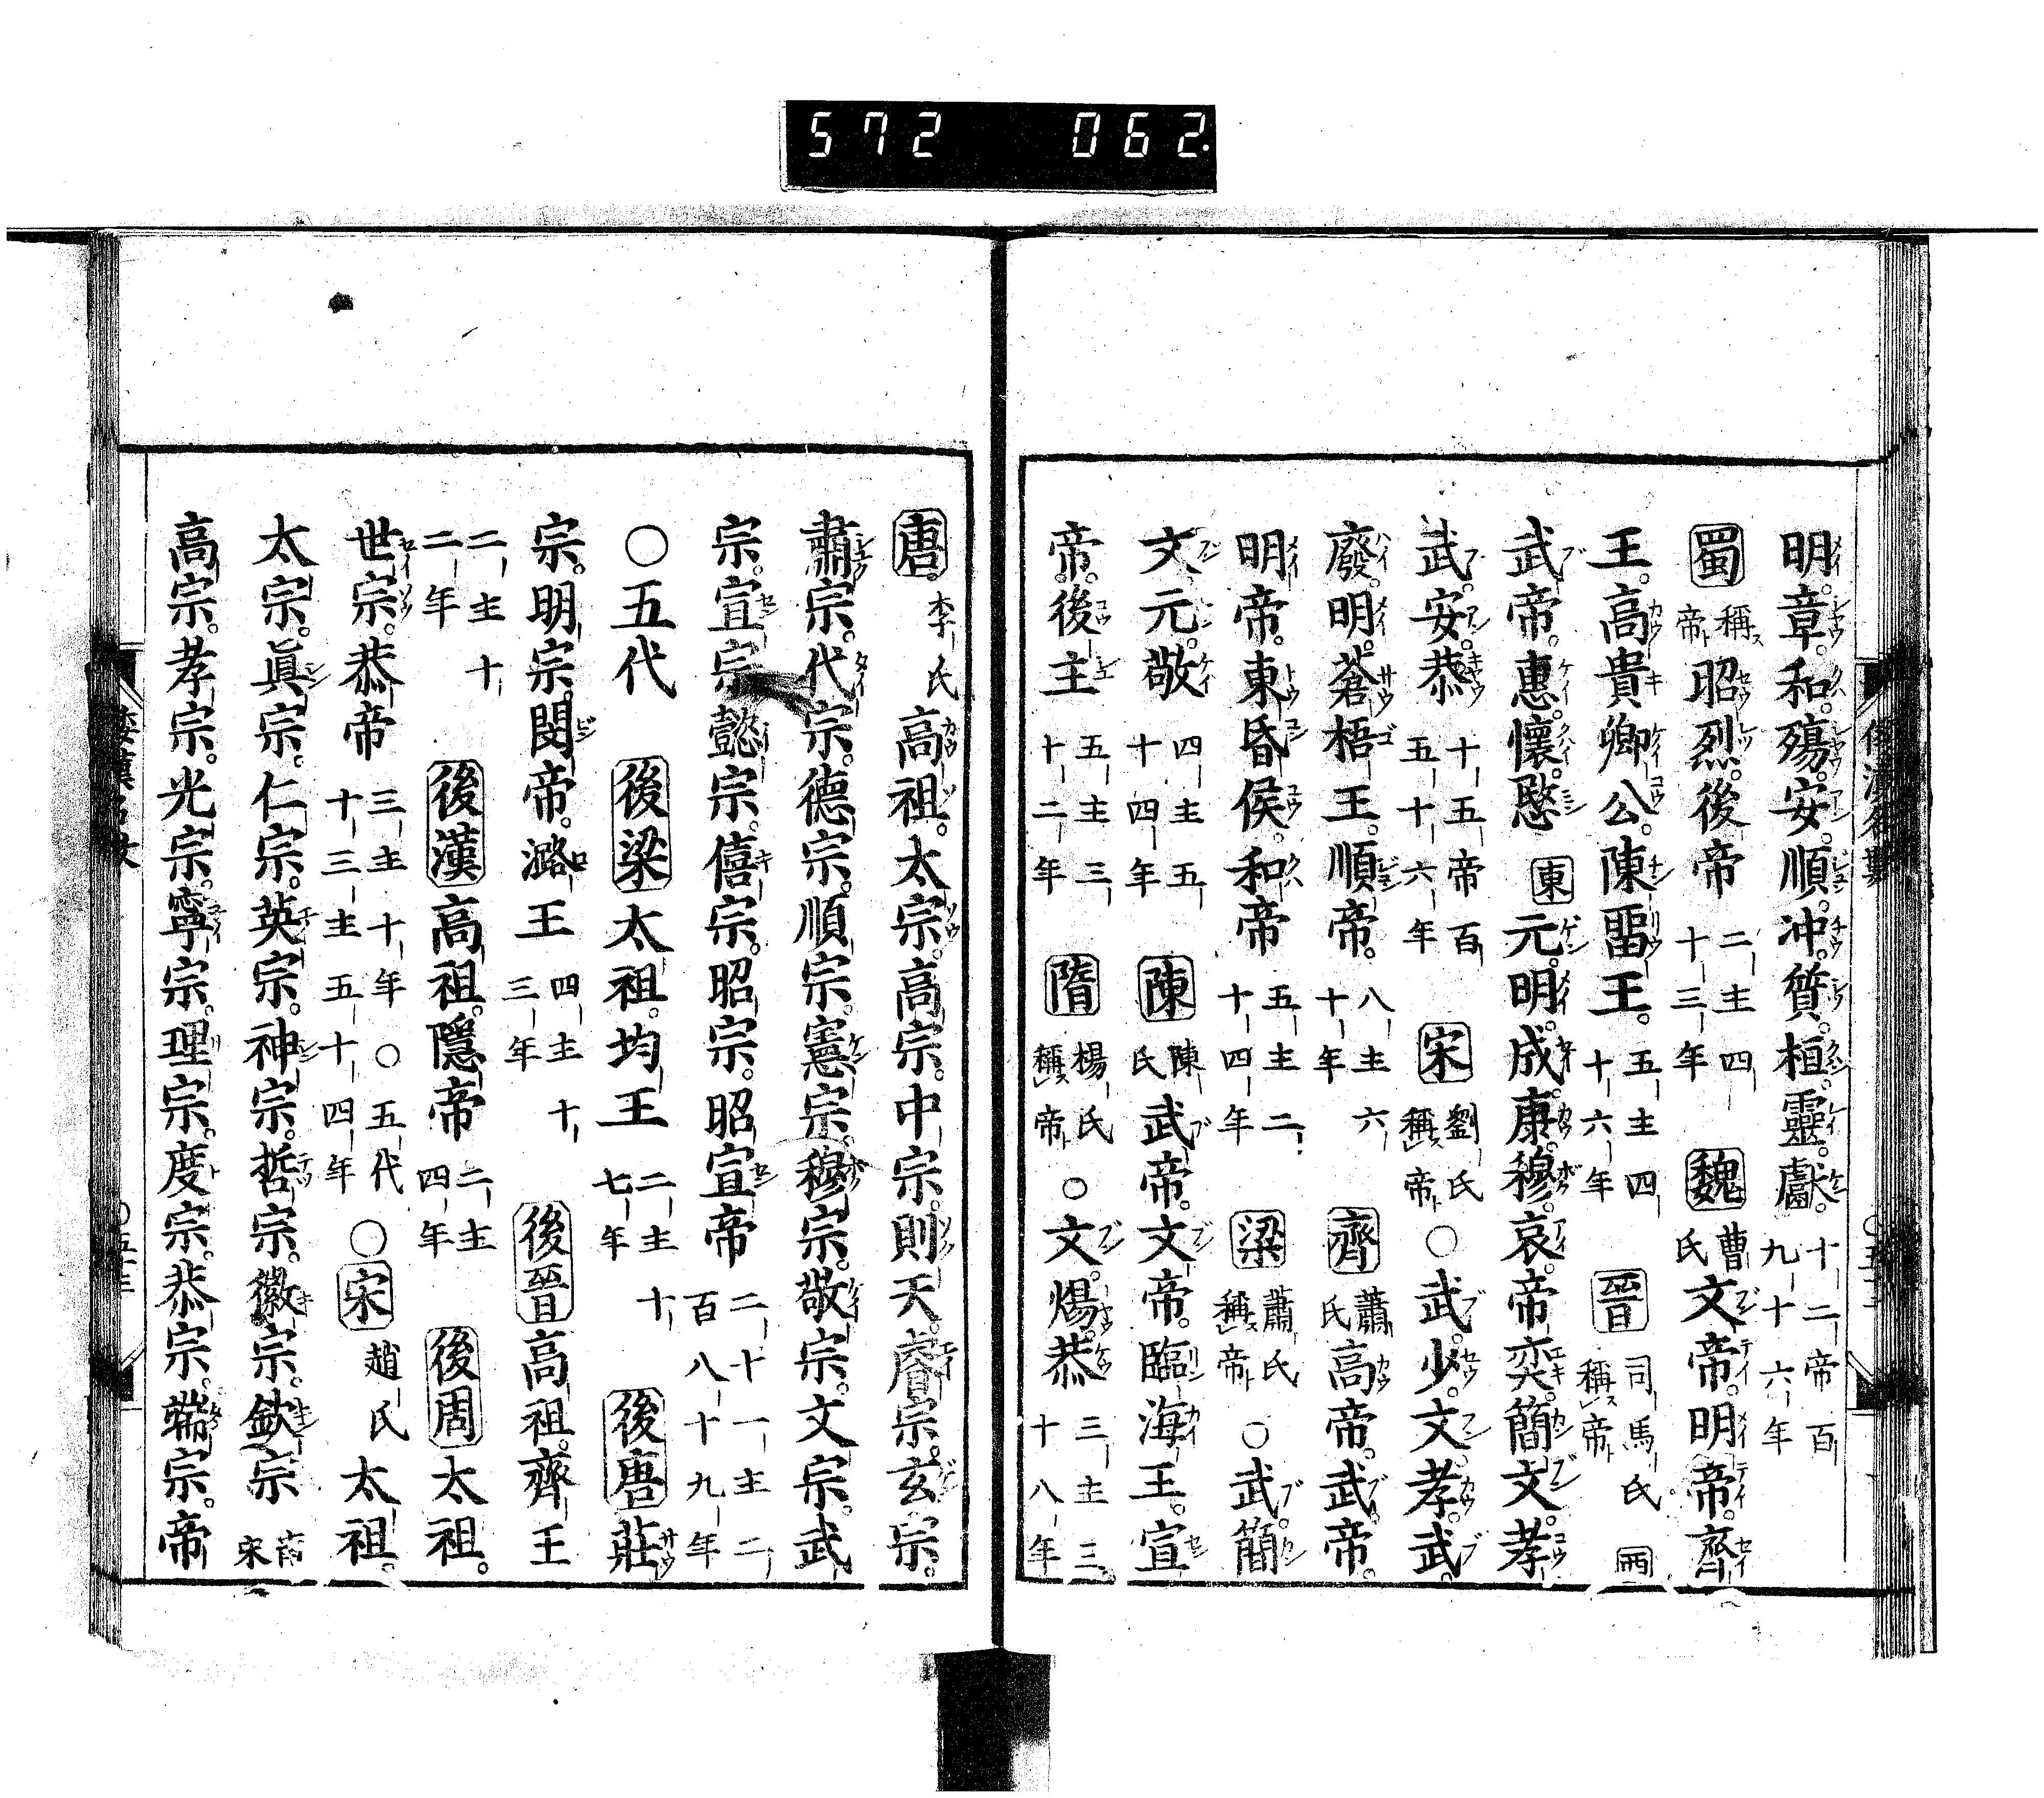 572 062
明。章。和。殤。安。順。沖。質。桓。靈。獻。十二帝百九十六年
蜀 稱帝 昭烈。後帝 二主四十三年 魏 曹氏 文帝。明帝。齊
王。高貴卿公。陳留王。五主四十六年 晉 司馬氏稱帝 西
武帝。惠。懷。愍 東 元。明。成。康。穆。哀。帝奕。簡文。孝
武。安。恭 十五帝百五十六年 宋 劉氏稱帝 ○武。少。文。孝武。
廢。明。蒼梧王。順帝。八主六十年 齊 蕭氏 高帝。武帝。
明帝。東昏侯。和帝 五主二十四年 梁 蕭氏稱帝 ○武。簡
文。元。敬 四主五十四年 陳 陳氏 武帝。文帝。臨海王。宣
帝。後主 五主三十二年 隋 楊氏稱帝 ○文。煬。恭 三主三十八年
唐 李氏 高祖。太宗。高宗。中宗。則天。睿宗。玄宗。
肅宗。代宗。德宗。順宗。憲宗。穆宗。敬宗。文宗。武
宗。宣宗。懿宗。僖宗。昭宗。昭宣帝 二十一主二百八十九年
○五代 後梁 太祖。均王 二主十七年 後唐 莊
宗。明宗。閔帝。潞王 四主十三年 後晉 高祖。齊王
二主十二年 後漢 高祖。隱帝 二主四年 後周 太祖。
世宗。恭帝 三主十年○五代十三主五十四年 ○宋 趙氏 太祖。
太宗。眞宗。仁宗。英宗。神宗。哲宗。徽宗。欽宗 南宋
高宗。孝宗。光宗。寧宗。理宗。度宗。恭宗。端宗。帝